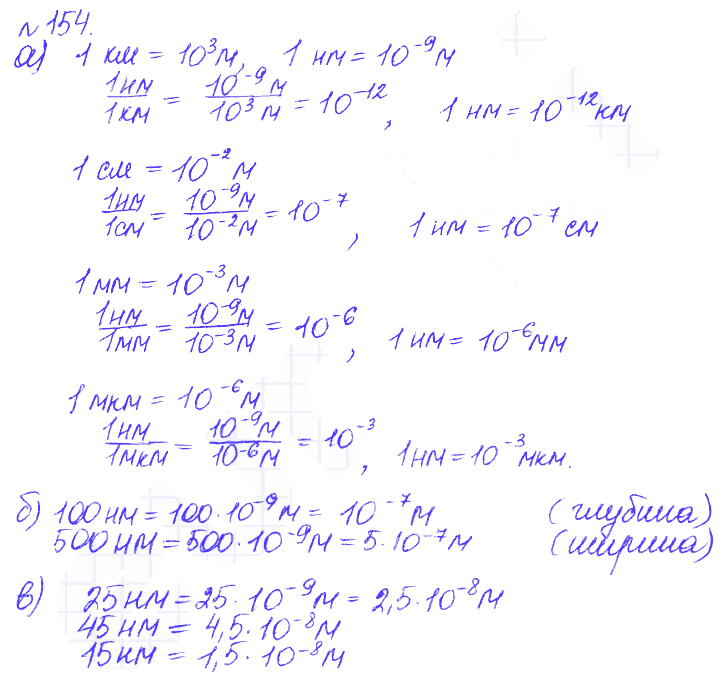 №154.
а) 1 км = 10³м, 1 нм = 10⁻⁹м
1нм/1км = 10⁻⁹м/10³м = 10⁻¹², 1 нм = 10⁻¹²км
1 см = 10⁻²м
1нм/1см = 10⁻⁹м/10⁻²м = 10⁻⁷, 1 нм = 10⁻⁷см
1мм = 10⁻³м
1нм/1мм = 10⁻⁹м/10⁻³м = 10⁻⁶, 1 нм = 10⁻⁶мм
1 мкм = 10⁻⁶м
1нм/1мкм = 10⁻⁹м/10⁻⁶м = 10⁻³, 1нм = 10⁻³мкм.
б) 100нм = 100·10⁻⁹м = 10⁻⁷м (глубина)
500нм = 500·10⁻⁹м = 5·10⁻⁷м (ширина)
в) 25нм = 25·10⁻⁹м = 2,5·10⁻⁸м
45нм = 4,5·10⁻⁸м
15нм = 1,5·10⁻⁸м